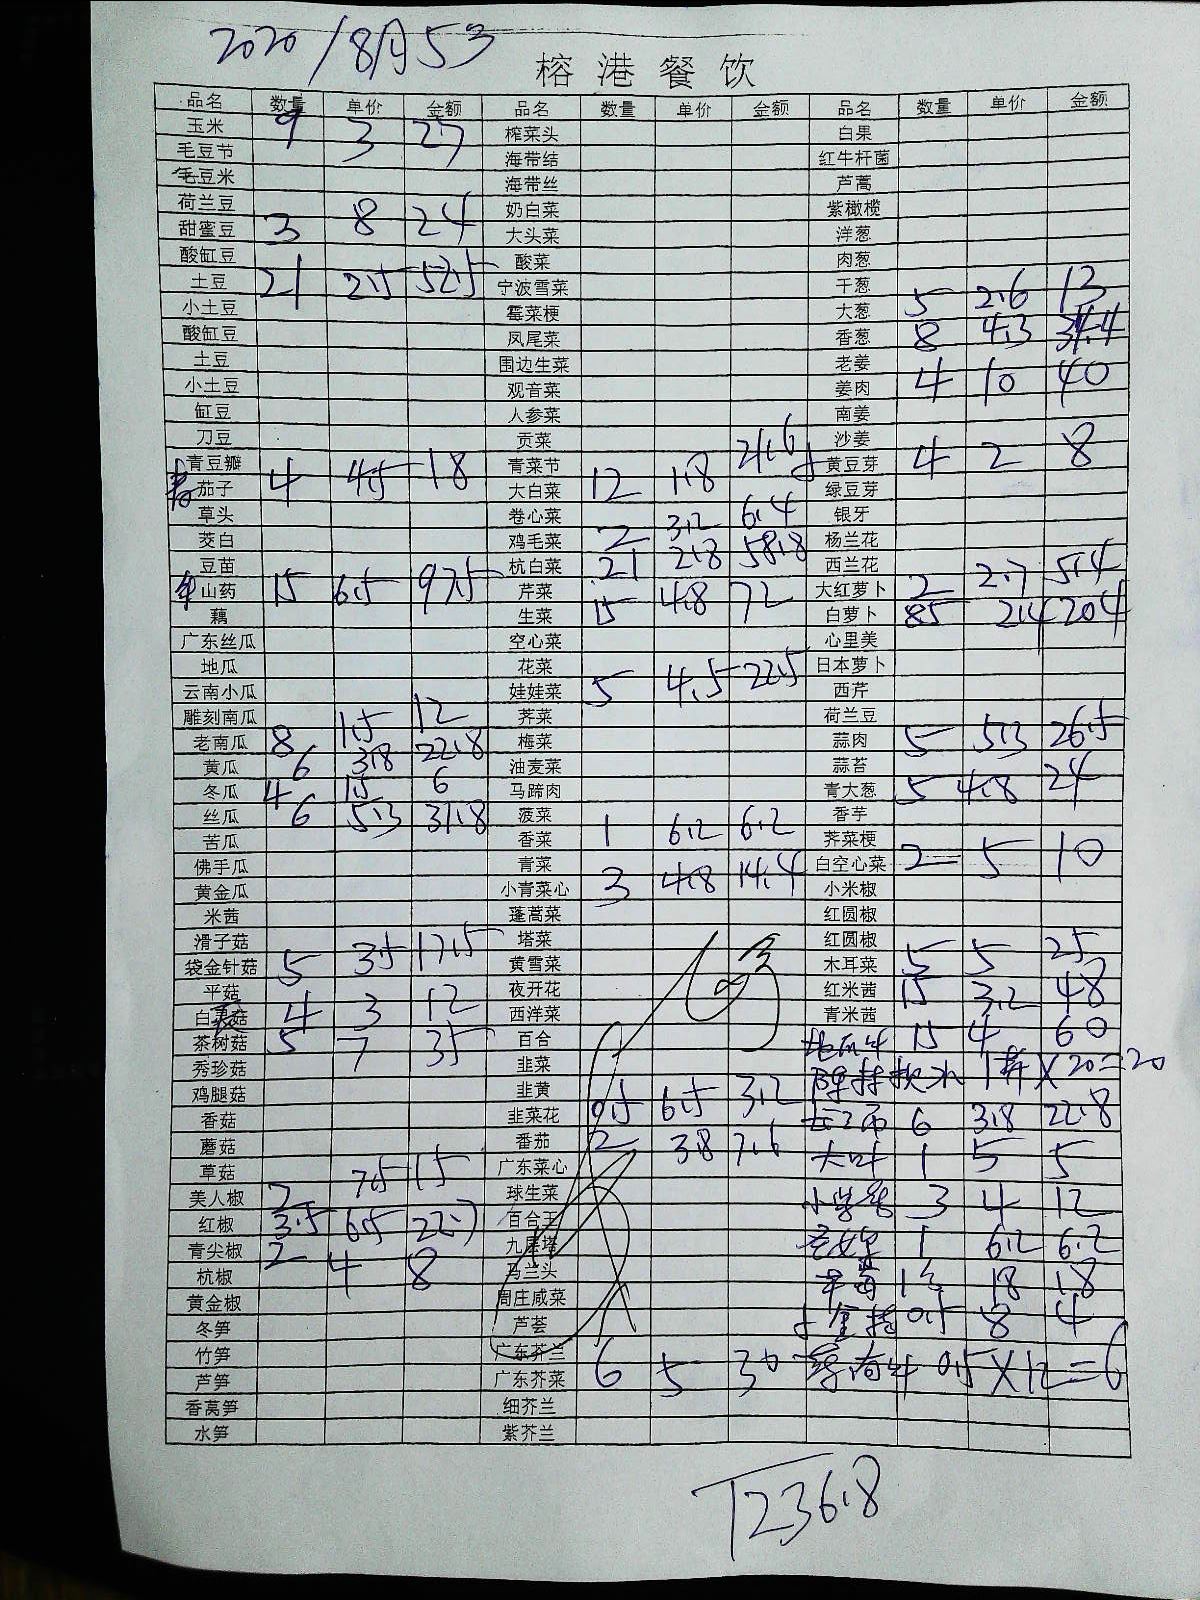 2020/8月53
榕港餐饮
品名 数量 单价 金额 品名 数量 单价 金额 品名 数量 单价 金额
玉米 9 3 27 榨菜头 白果
毛豆节 海带结 红牛杆菌
毛豆米 海带丝 芦蒿
荷兰豆 奶白菜 紫橄榄
甜蜜豆 3 8 24 大头菜 洋葱
酸缸豆 酸菜 肉葱
土豆 21 2.5 52.5 宁波雪菜 干葱
小土豆 霉菜梗 大葱 5 2.6 13
酸缸豆 凤尾菜 香葱 8 4.3 34.4
土豆 围边生菜 老姜
小土豆 观音菜 姜肉 4 10 40
缸豆 人参菜 南姜
刀豆 贡菜 沙姜
青豆瓣 青菜节 黄豆芽 4 2 8
茄子 4 4.5 18 大白菜 12 1.8 21.6 绿豆芽
草头 卷心菜 银牙
茭白 鸡毛菜 2 3.2 6.4 杨兰花
豆苗 杭白菜 21 2.8 58.8 西兰花
山药 15 6.5 97.5 芹菜 大红萝卜 2 2.7 5.4
藕 生菜 15 4.8 72 白萝卜 85 2.4 204
广东丝瓜 空心菜 心里美
地瓜 花菜 日本萝卜
云南小瓜 娃娃菜 5 4.5 22.5 西芹
雕刻南瓜 荠菜 荷兰豆
老南瓜 8 1.5 12 梅菜 蒜肉 5 5.3 26.5
黄瓜 6 3.8 22.8 油麦菜 蒜苔
冬瓜 4 1.5 6 马蹄肉 青大葱 5 4.8 24
丝瓜 6 5.3 31.8 菠菜 香芋
苦瓜 香菜 1 6.2 6.2 荠菜梗
佛手瓜 青菜 白空心菜 2 5 10
黄金瓜 小青菜心 3 4.8 14.4 小米椒
米茜 蓬蒿菜 红圆椒
滑子菇 塔菜 红圆椒
袋金针菇 5 3.5 17.5 黄雪菜 木耳菜 5 5 25
平菇 夜开花 红米茜 15 3.2 48
白菇 4 3 12 西洋菜 青米茜
茶树菇 5 7 35 百合 15 4 60
秀珍菇 韭菜 1 X 20=20
鸡腿菇 韭黄
香菇 韭菜花 0.5 6.5 3.2 6 3.8 22.8
蘑菇 番茄 2 3.8 7.6 大叶 1 5 5
草菇 广东菜心
美人椒 2 7.5 15 球生菜 3 4 12
红椒 3.5 6.5 22.7 百合王 1 6.2 6.2
青尖椒 2 4 8 九层塔
杭椒 马兰头 草莓 1 18 18
黄金椒 周庄咸菜 0.5 8 4
冬笋 芦荟
竹笋 广东芥兰
芦笋 广东芥菜 6 5 30 0.5X12=6
香莴笋 细芥兰
水笋 紫芥兰
1236.8